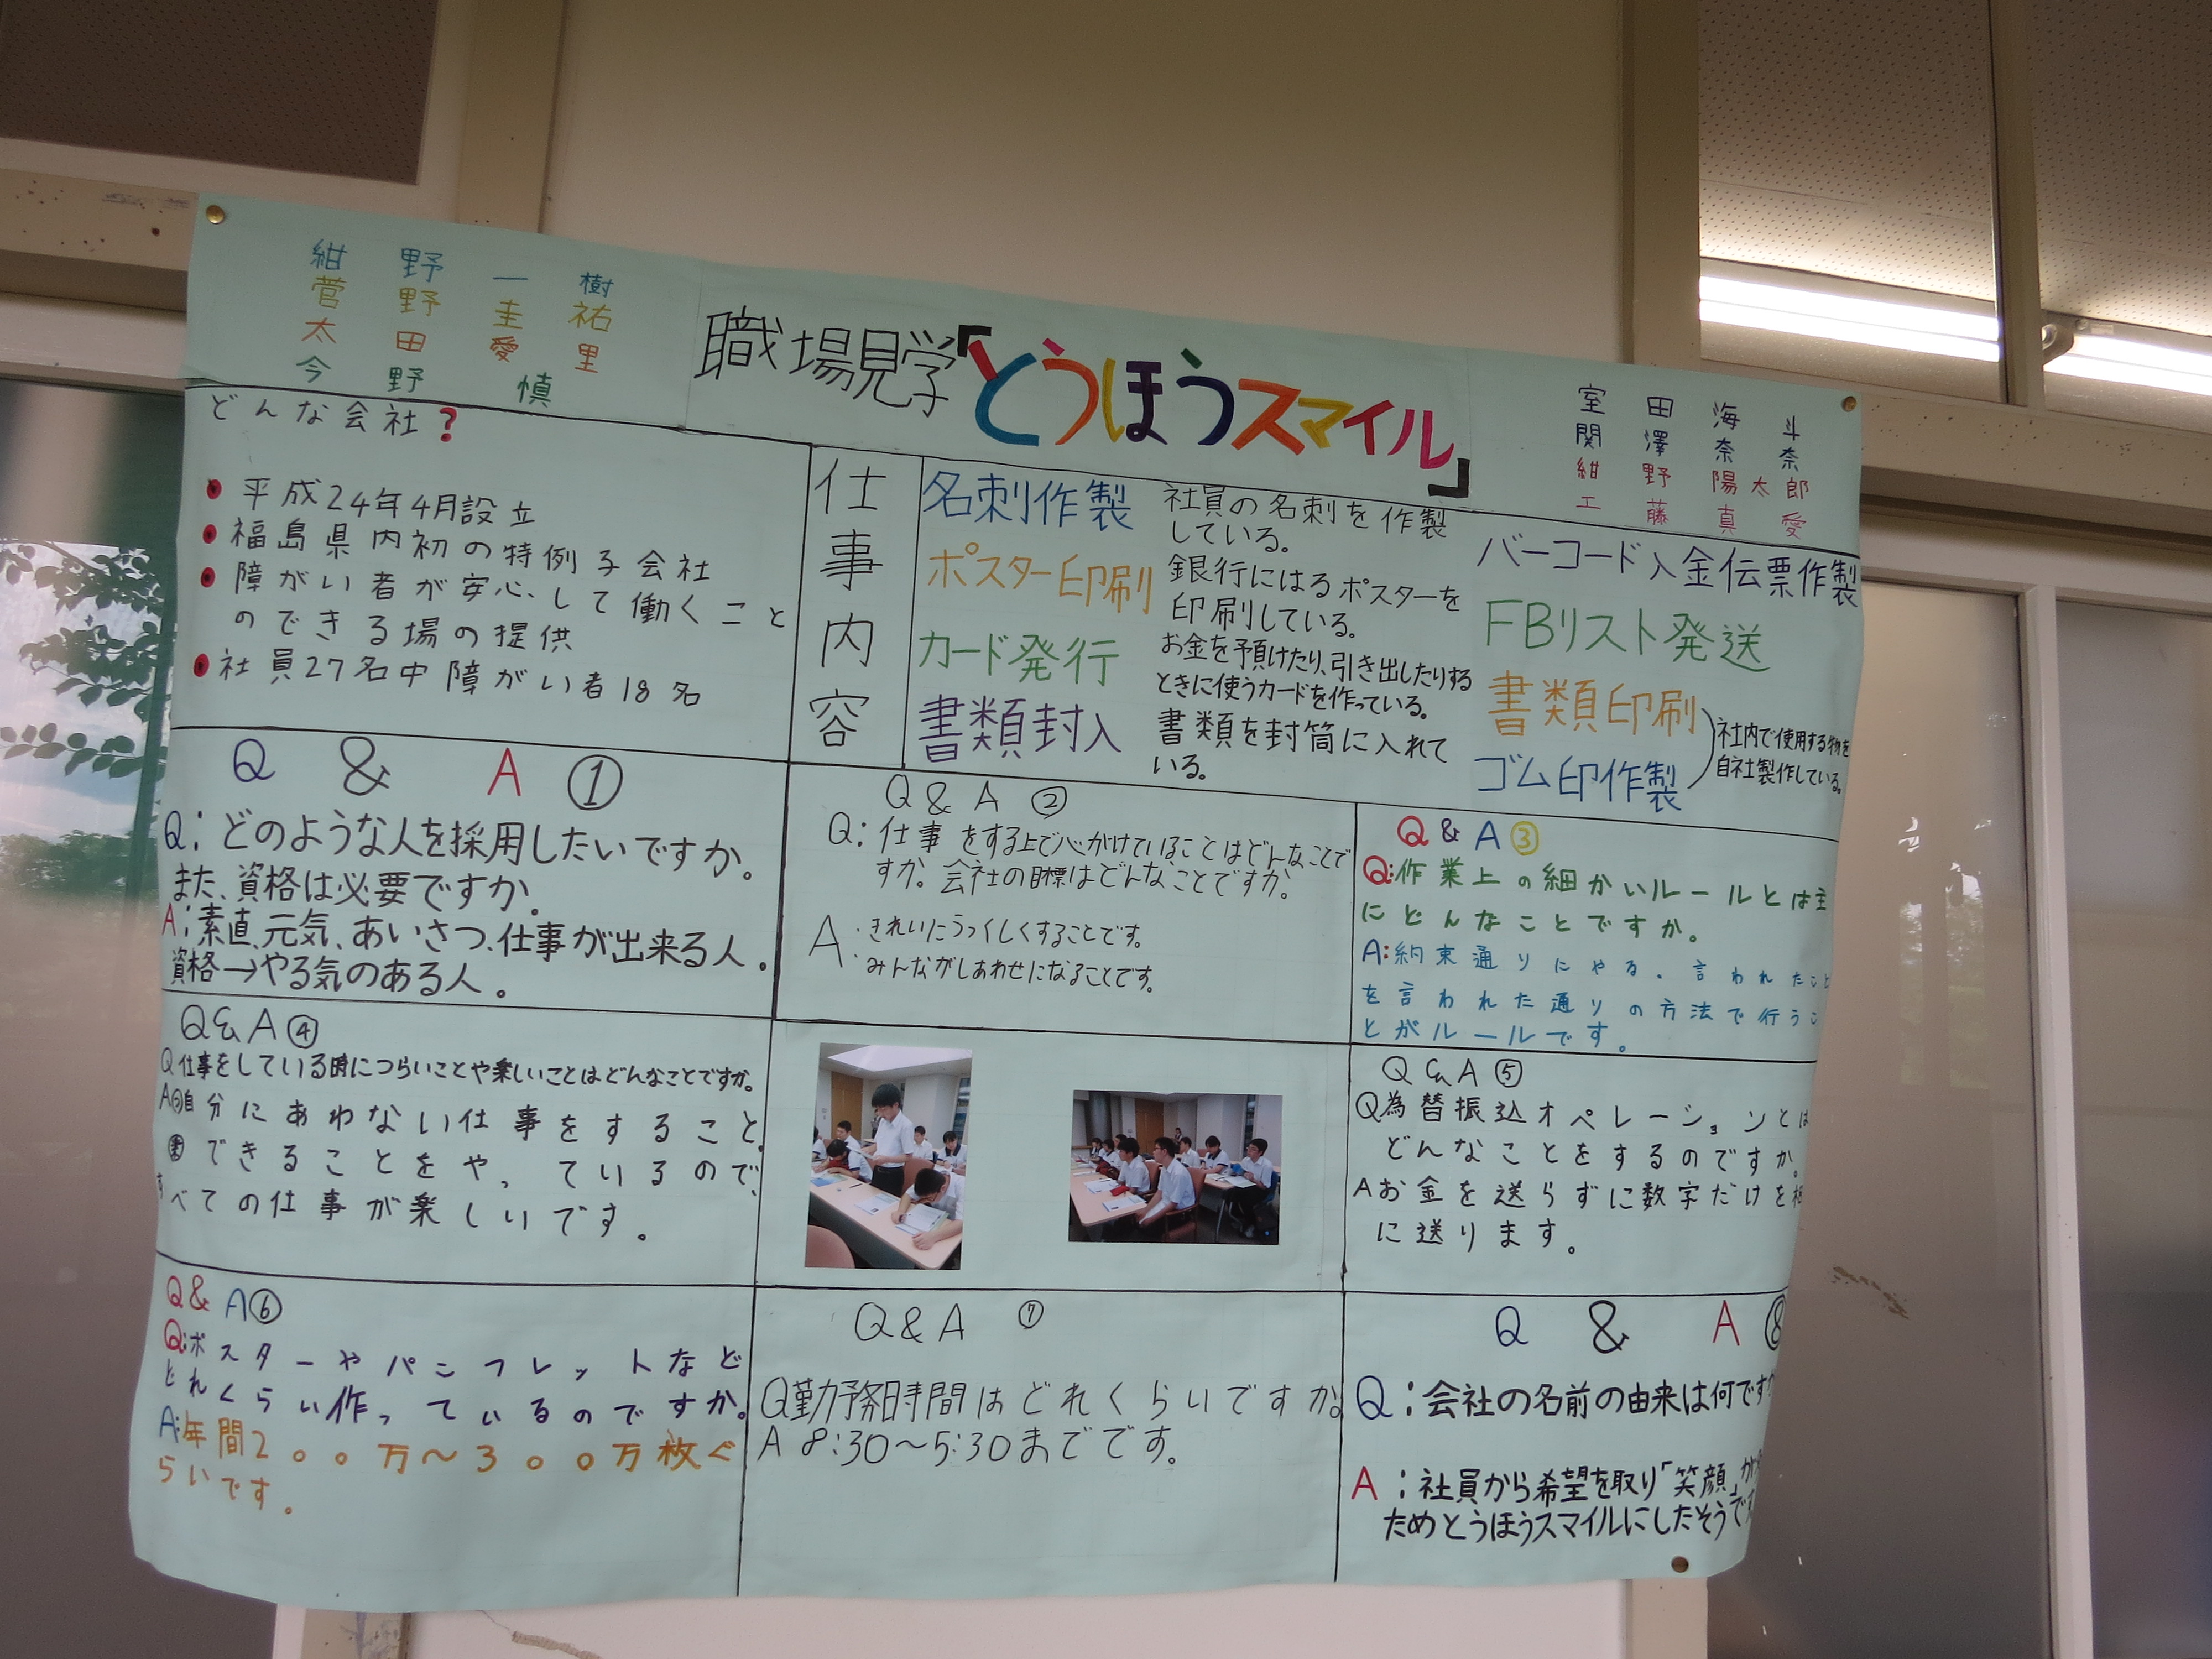 紺野一樹
菅野圭祐
太田愛里
今野慎
職場見学「とうほうスマイル」
室田海斗
関澤奈奈
紺野陽太郎
工藤真愛
どんな会社?
平成24年4月設立
福島県内初の特例子会社
障がい者が安心して働くこと
のできる場の提供
社員27名中障がい者18名
仕事内容
名刺作製
社員の名刺を作製
している。
ポスター印刷
銀行にはるポスターを
印刷している。
カード発行
お金を預けたり、引き出したりする
ときに使うカードを作っている。
書類封入
書類を封筒に入れて
いる。
バーコード入金伝票作製
FBリスト発送
書類印刷
ゴム印作製
社内で使用する物を
自社製作している。
Q & A ①
Q:どのような人を採用したいですか。
また、資格は必要ですか。
A:素直、元気、あいさつ、仕事が出来る人。
資格→やる気のある人。
Q & A ②
Q:仕事をする上で心がけていることはどんなことで
すか。会社の目標はどんなことですか。
A:きれいにうつくしくすることです。
みんながしあわせになることです。
Q & A ③
Q:作業上の細かいルールとは主
にどんなことですか。
A:約束通りにやる。言われたこと
を言われた通りの方法で行うこ
とがルールです。
Q&A④
Q仕事をしている時につらいことや楽しいことはどんなことですか。
A 自分にあわない仕事をすること。
できることをやっているので、
すべての仕事が楽しいです。
Q&A⑤
Q為替振込オペレーションとは
どんなことをするのですか。
Aお金を送らずに数字だけを
に送ります。
Q& A⑥
Q:ポスターやパンフレットなど
どれくらい作っているのですか。
A:年間200万～300万枚ぐ
らいです。
Q&A ⑦
Q勤務時間はどれくらいですか
A 8:30～5:30までです。
Q & A ⑧
Q:会社の名前の由来は何です
A:社員から希望を取り「笑顔」が
ためとうほうスマイルにしたそうで